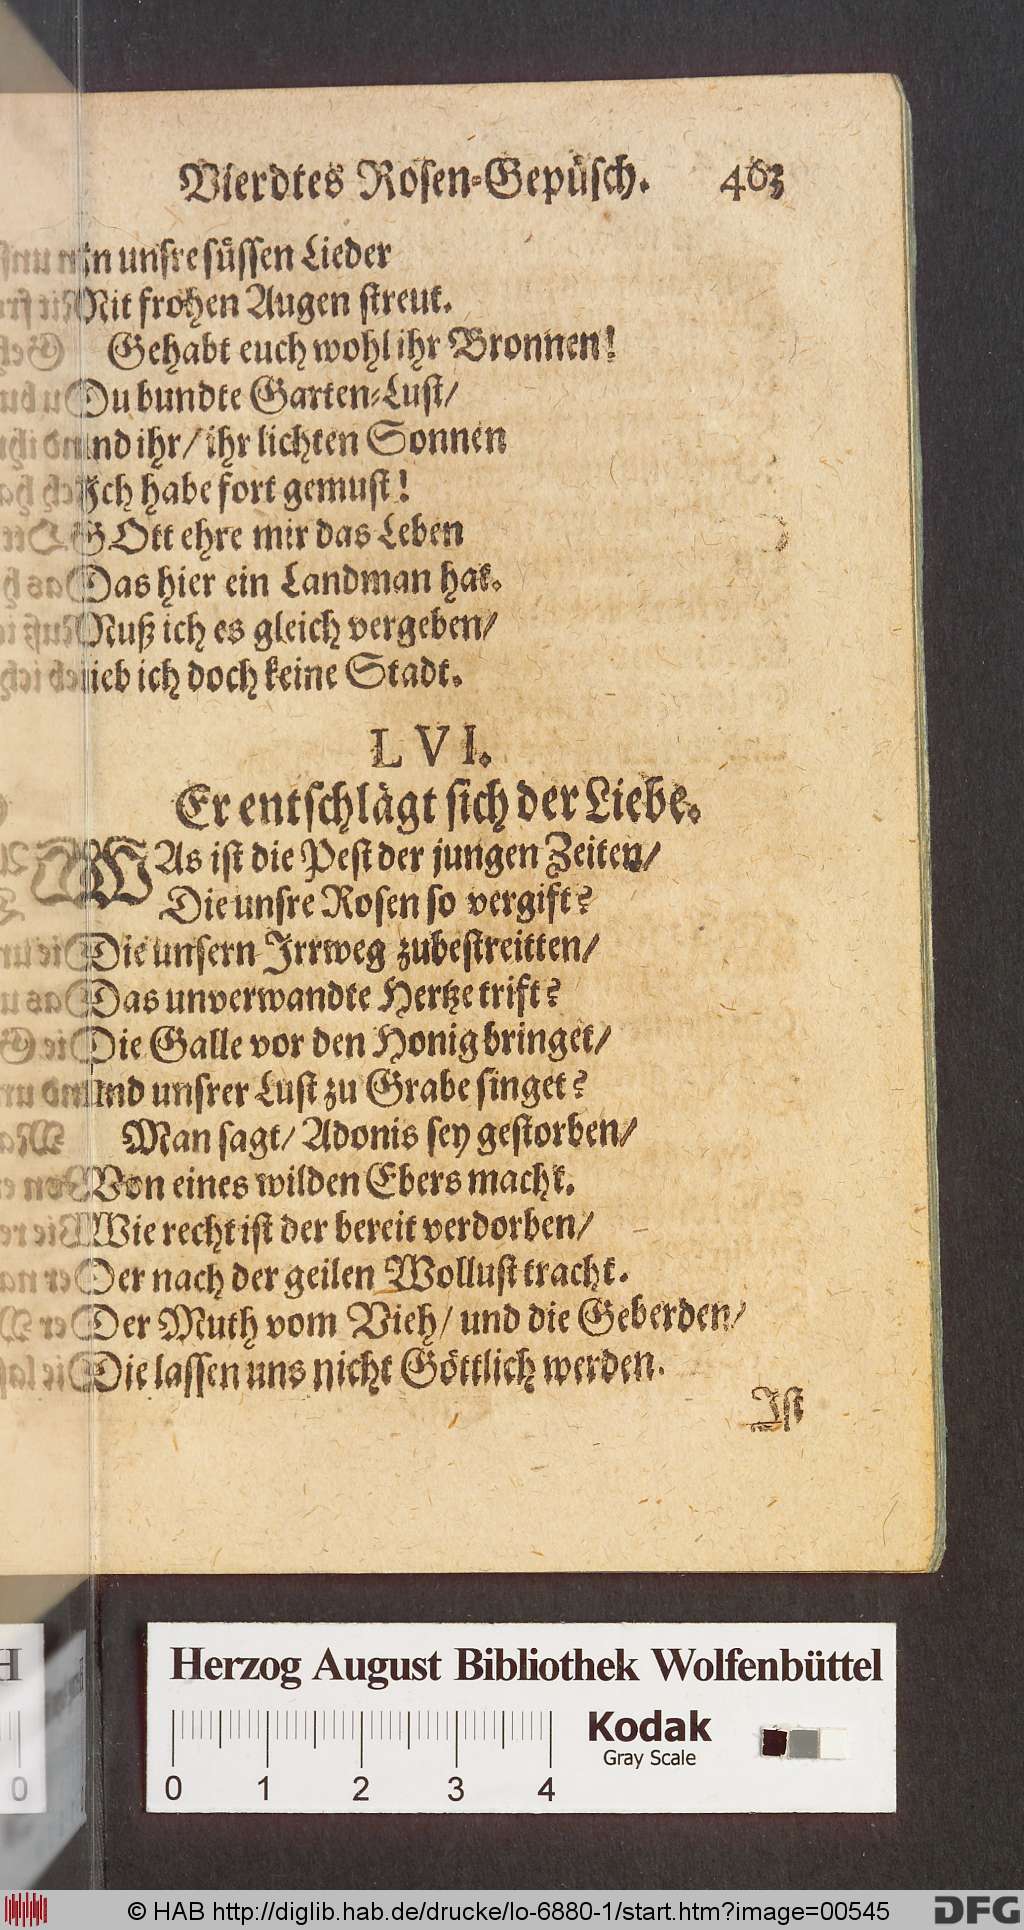 Vierdtes Rosen-Gepüsch. 463
In unsre süssen Lieder
Mit frohen Augen streut.
Gehabt euch wohl ihr Bronnen!
Du bundte Garten-Lust/
und ihr/ ihr lichten Sonnen
Ich habe fort gemust!
GOtt ehre mir das Leben
Das hier ein Landman hat.
Muß ich es gleich vergeben/
lieb ich doch keine Stadt.
LVI.
Er entschlägt sich der Liebe.
WAs ist die Pest der jungen Zeiten/
Die unsre Rosen so vergift?
Die unsern Irrweg zubestreitten/
Das unverwandte Hertze trift?
Die Galle vor den Honig bringet/
und unsrer Lust zu Grabe singet?
Man sagt/ Adonis sey gestorben/
Von eines wilden Ebers macht.
Wie recht ist der bereit verdorben/
Der nach der geilen Wollust tracht.
Der Muth vom Vieh/ und die Geberden/
Die lassen uns nicht Göttlich werden.
Ist
Herzog August Bibliothek Wolfenbüttel
Kodak
Gray Scale
0 1 2 3 4
© HAB http://diglib.hab.de/drucke/lo-6880-1/start.htm?image=00545
DFG